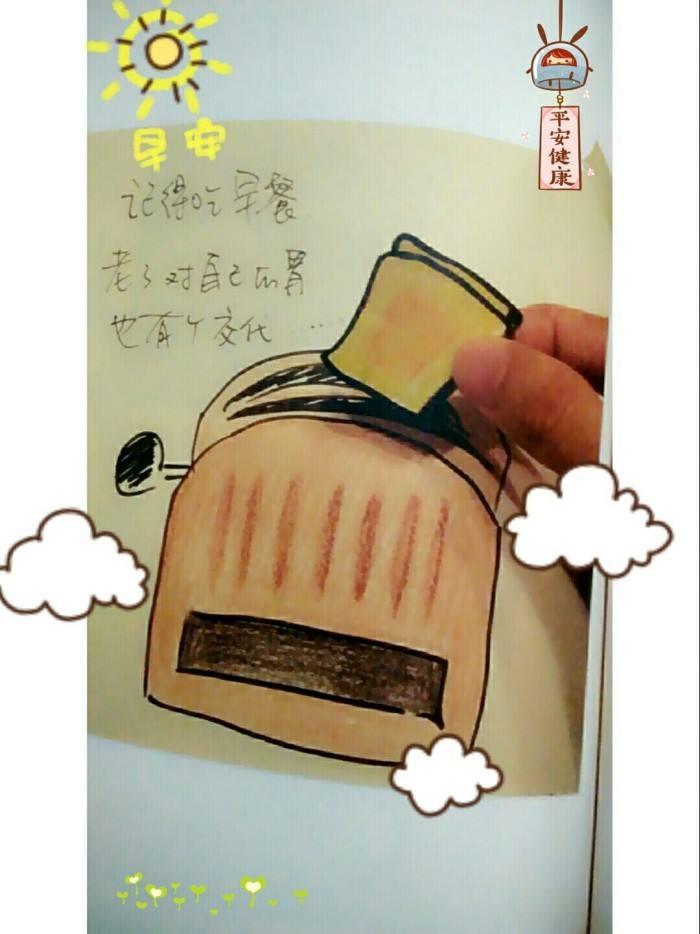 早安
平安健康
记得吃早餐
老了对自己的胃
也有个交代……